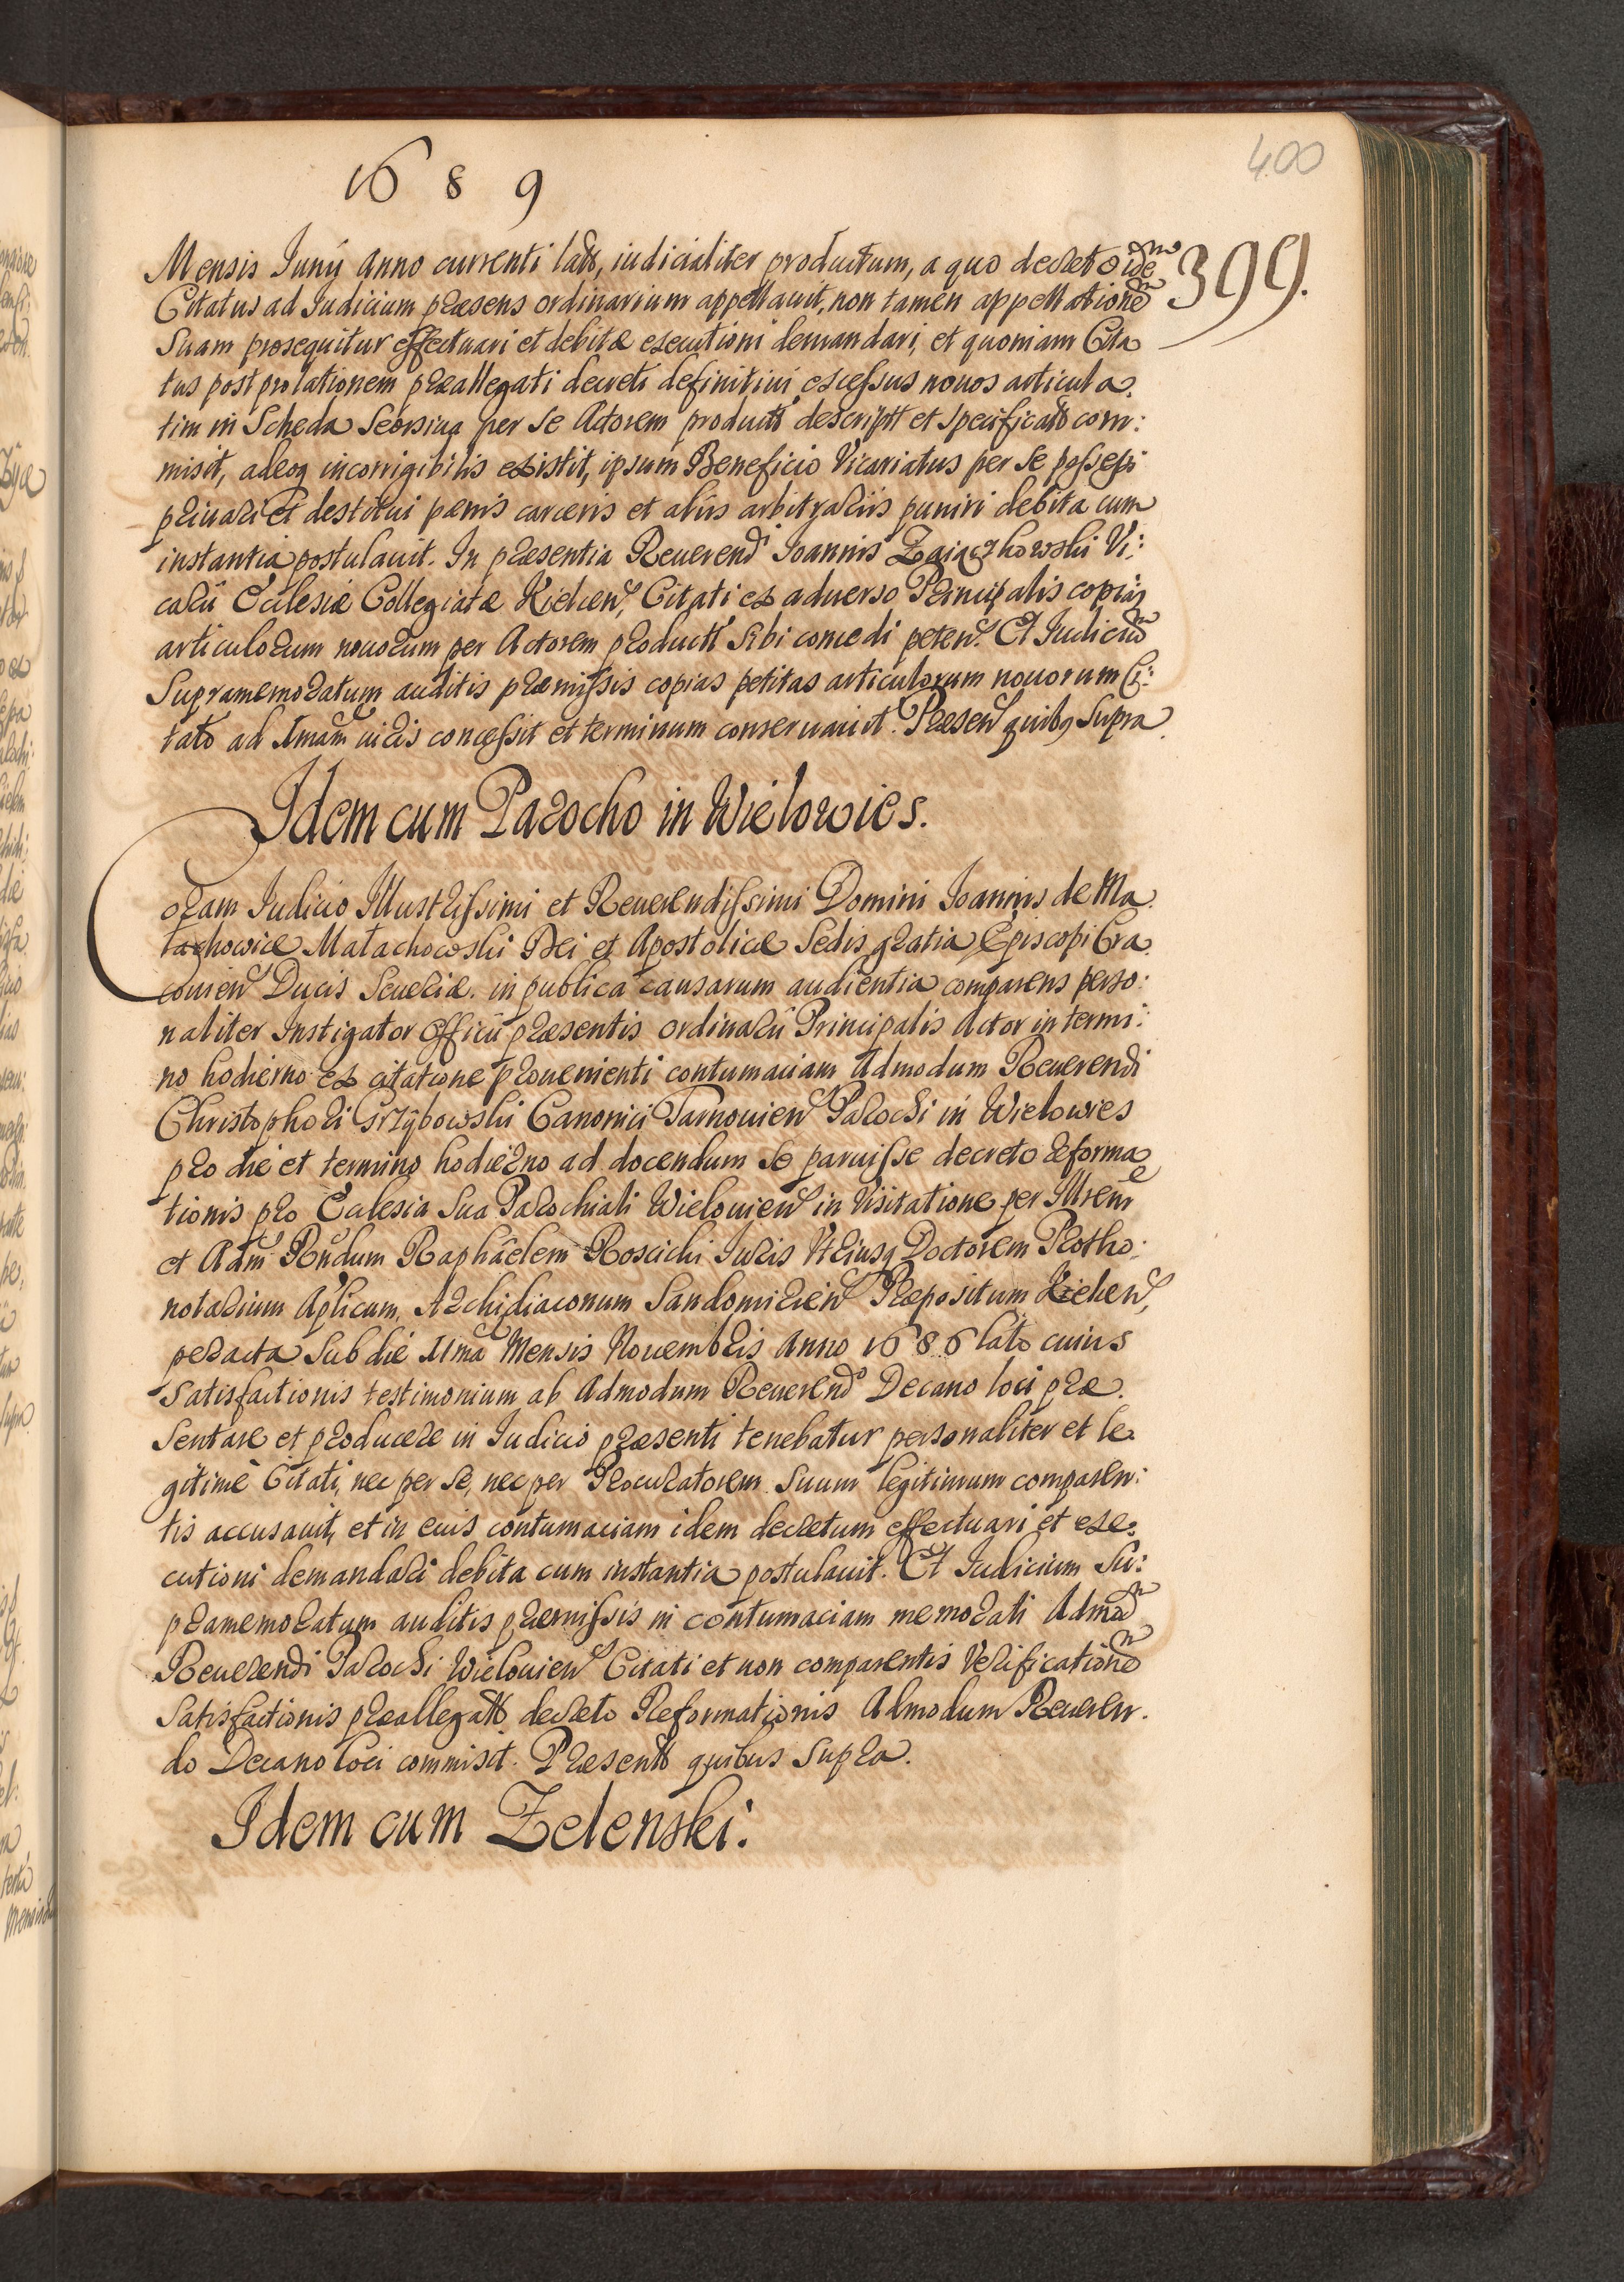 400
1689
399.
Mensis Junÿ Anno currenti latt, iudicialiter productum, a quo decreto idem
Citatus ad Iudicium præsens ordinarium appellauit, non tamen appellatione
Suam prosequitur effectuari et debitæ executioni demandari, et quoniam Cita
tus post prolationem præallegati decreti definitiui, excessus nouos articula,
tim in Scheda Seorsiua per se Actorem product descript et specificatt com:
misit, adeoq incorrigibilis existit, ipsum Beneficio Vicariatus per se possessi
priuari et destitui pænis carceris et aliis arbitrariis puniri debita cum
instantia postulauit. In præsentia Reuerendi Joannis Zaiączkowski Vi:
carii Ecclesiæ Collegiatæ Kielcen, Citati ex aduerso Principalis copias
articulorum nouorum per Actorem product sibi concedi peten. Et Iudiciu
Supramemoratum auditis præmissis copias petitas articulorum nouorum Ci:
tato ad Imam iuris concessit et terminum conseruauit. Præsen quibq Supra
Idem cum Parocho in Wielowies.
Coram Iudicio Illustrissimi et Reuerendissimi Domini Joannis de Ma
łachowice Małachowski Dei et Apostolicæ Sedis gratia Episcopi Cra
couien Ducis Seueriæ. in publica causarum audientia comparens perso:
naliter Instigator Officii præsentis ordinarii Principalis Actor in termi:
no hodierno ex citatione prouenienti contumaciam Admodum Reuerendi
Christophori Grzÿbowski Canonici Tarnouien Parochi in Wielowies
pro die et termino hodierno ad docendum se paruisse decreto reforma
tionis pro Ecclesia sua Parochiali Wielouien in Visitatione per Illrem
et Adm Rndum Raphaelem Roscicki Juris Vtriusq Doctorem Protho:
notarium Aplicum, Archidiaconum Sandomirien Præpositum Kielcen,
peracta Sub die IIma Mensis Nouembris Anno 1686 lato cuius
Satisfactionis testimonium ab Admodum Reuerendo Decano loci præ
sentare et producere in Iudicio præsenti tenebatur personaliter et le
gitime Citati, nec per se, nec per Procuratorem Suum legitimum comparen:
tis accusauit, et in euis contumaciam idem decretum effectuari et exe:
cutioni demandari debita cum instantia postulauit. Et Iudicium Su:
pramemoratum auditis præmissis in contumaciam memorati Admod
Reuerendi Parochi Wielouien Citati et non comparentis Verificatione
Satisfactionis præallegatt decreto Reformationis Admodum Reueren.
do Decano loci commisit. Præsentt quibus Supra.
Idem cum Zelenski: